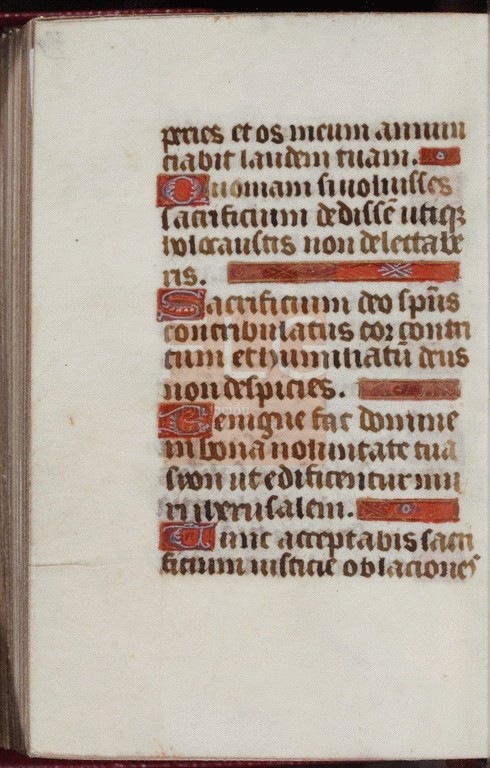 peries et os meum annun
ciabit laudem tuam.
Quoniam si voluisses
sacrificium dedissē utiqꝫ
holocaustis non delectabe
ris.
Sacrificium deo spūs
contribulatus cor contri
tum et humiliatū deus
non despicies.
Benigne fac domine
in bona voluntate tua
syon ut edificentur mu
ri iherusalem.
Tunc acceptabis sacri
ficium iusticie oblaciones